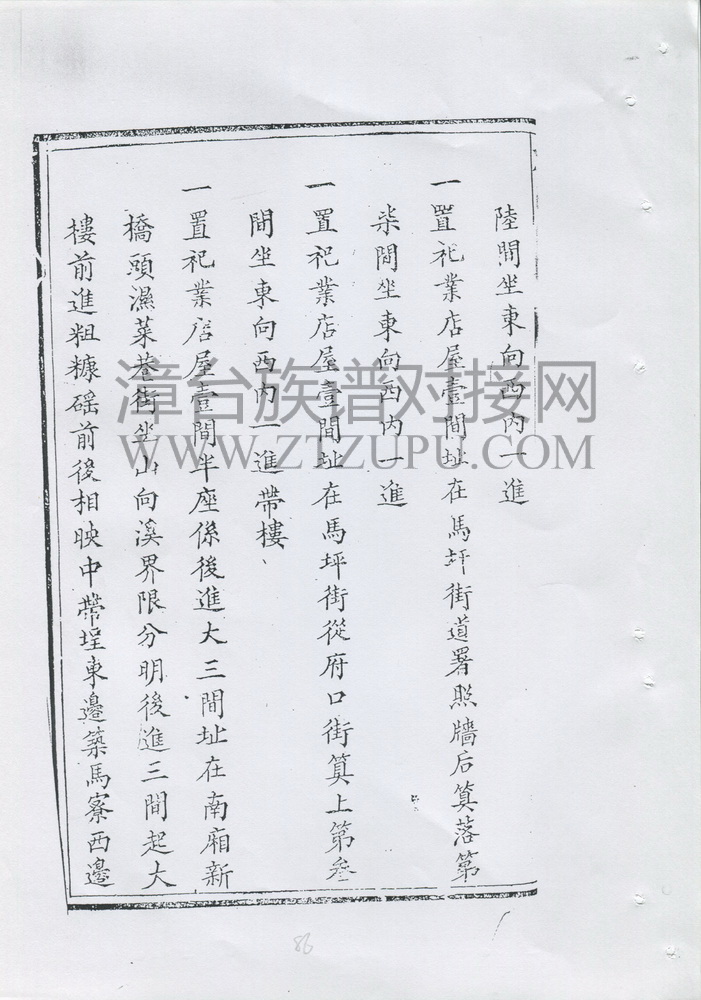 陸間坐東向西內一進
一置祀業店屋壹間址在馬坪街道署照牆后算落第
柒間坐東向西內一進
一置祀業店屋壹間址在馬坪街從府口街算上第叁
間坐東向西內一進帶樓
一置祀業店屋壹間半座係後進大三間址在南廂新
橋頭濕菜巷街坐山向溪界限分明後進三間起大
樓前進粗糠磘前後相映中帶埕東邊築馬寮西邊
漳台族谱对接网
WWW.ZTZUPU.COM
86